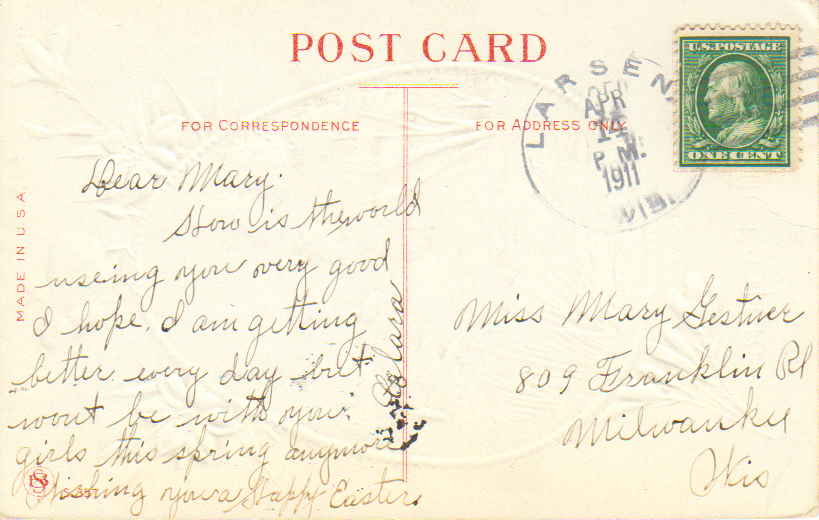 POST CARD
FOR CORRESPONDENCE
FOR ADDRESS ONLY
MADE IN U.S.A
U.S. POSTAGE
ONE CENT
LARSEN
APR
P.M.
1911
WIS.
Dear Mary.
How is the world
useing you very good
I hope. I am getting
better every day but
wont be with you
girls this spring anymore
Wishing you a Happy Easter.
Clara
Miss Mary Gestner
809 Franklin Pl
Milwaukee
Wis